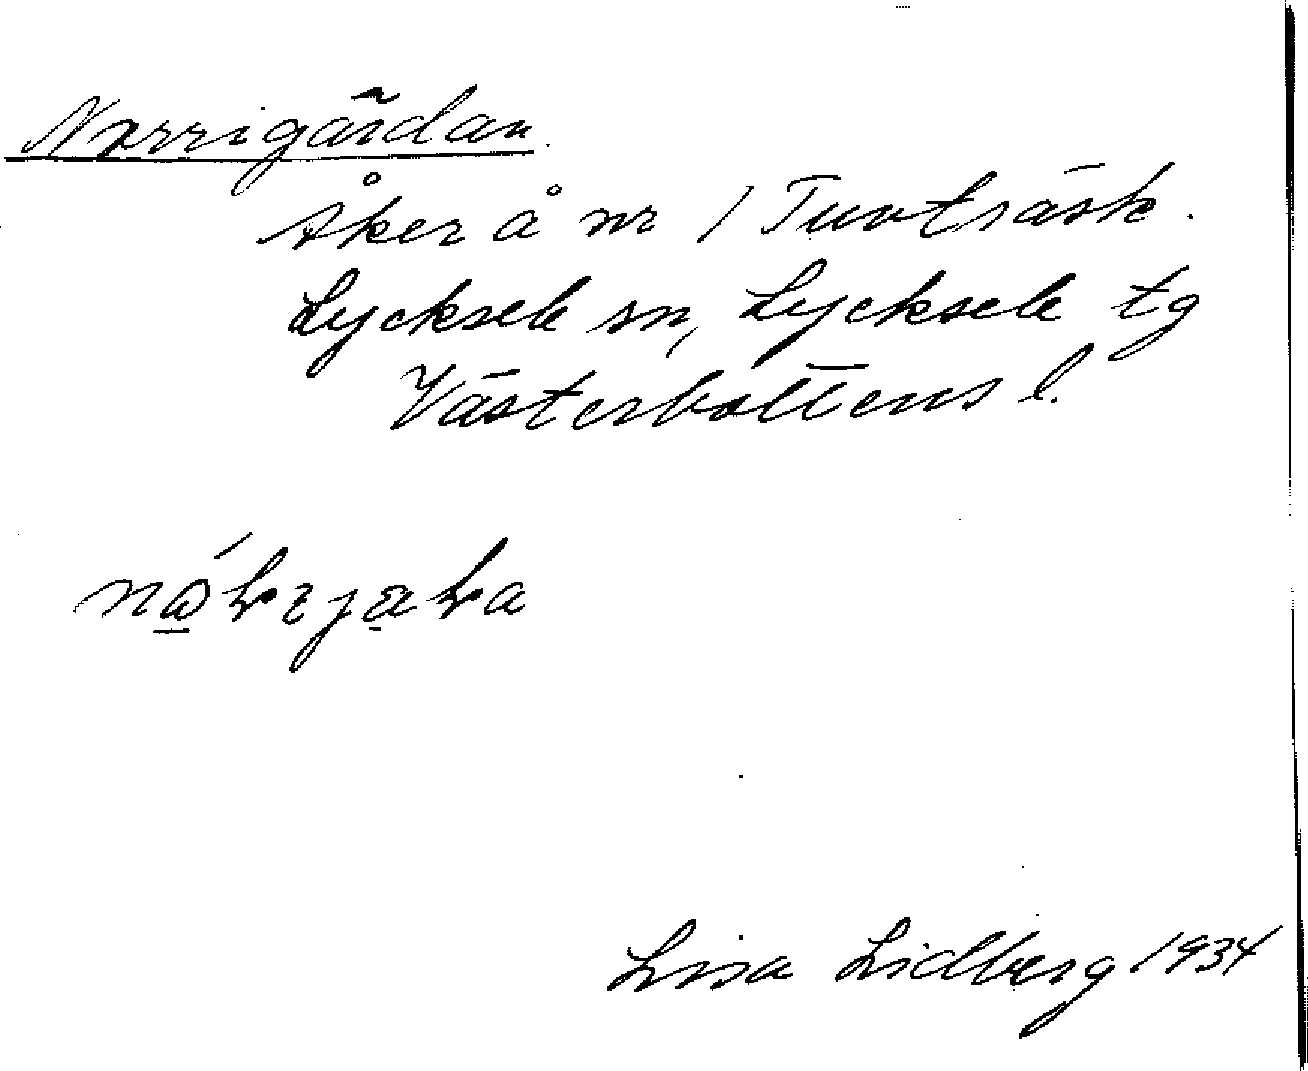 Norrigärdan.
Åker å nr 1 Tuvträsk.
Lycksele sn, Lycksele tg
Västerbottens l.
Lisa Lidberg 1934